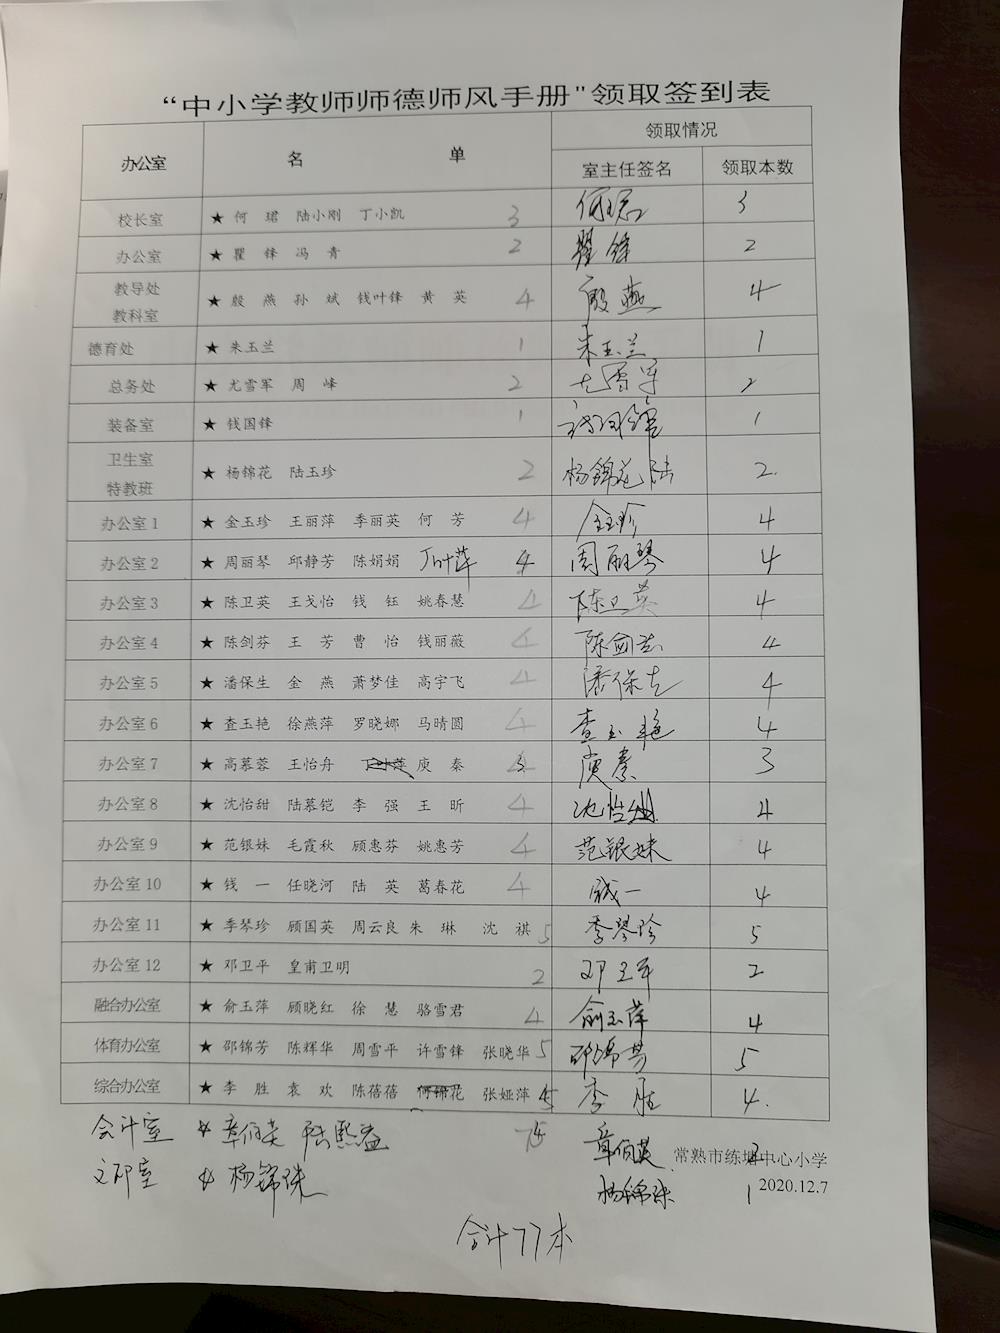 “中小学教师师德师风手册”领取签到表
办公室 名 单 领取情况
室主任签名 领取本数
校长室 ★ 何 珺 陆小刚 丁小凯 3 何珺 3
办公室 ★ 瞿 锋 冯 青 2 瞿锋 2
教导处 教科室 ★ 殷 燕 孙 斌 钱叶锋 黄 英 4 殷燕 4
德育处 ★ 朱玉兰 1 朱玉兰 1
总务处 ★ 尤雪军 周 峰 2 尤雪军 2
装备室 ★ 钱国锋 1 钱国锋 1
卫生室 特教班 ★ 杨锦花 陆玉珍 2 杨锦花 陆 2
办公室1 ★ 金玉珍 王丽萍 季丽英 何 芳 4 金玉珍 4
办公室2 ★ 周丽琴 邱静芳 陈娟娟 丁叶萍 4 周丽琴 4
办公室3 ★ 陈卫英 王戈怡 钱 钰 姚春慧 4 陈卫英 4
办公室4 ★ 陈剑芬 王 芳 曹 怡 钱丽薇 4 陈剑芬 4
办公室5 ★ 潘保生 金 燕 萧梦佳 高宇飞 4 潘保生 4
办公室6 ★ 查玉艳 徐燕萍 罗晓娜 马晴圆 4 查玉艳 4
办公室7 ★ 高慕蓉 王怡舟 庾 秦 3 庾秦 3
办公室8 ★ 沈怡甜 陆慕铠 李 强 王 昕 4 沈怡甜 4
办公室9 ★ 范银妹 毛霞秋 顾惠芬 姚惠芳 4 范银妹 4
办公室10 ★ 钱 一 任晓河 陆 英 葛春花 4 钱一 4
办公室11 ★ 季琴珍 顾国英 周云良 朱 琳 沈 祺 5 季琴珍 5
办公室12 ★ 邓卫平 皇甫卫明 2 邓卫平 2
融合办公室 ★ 俞玉萍 顾晓红 徐 慧 骆雪君 4 俞玉萍 4
体育办公室 ★ 邵锦芳 陈辉华 周雪平 许雪锋 张晓华 5 邵锦芳 5
综合办公室 ★ 李 胜 袁 欢 陈蓓蓓 何锦花 张娅萍 4 李胜 4.
会计室 ★ 章向英 陆熙益 章向英 2
常熟市练塘中心小学
文印室 ★ 杨锦珠 杨锦珠 1
2020.12.7
合计77本